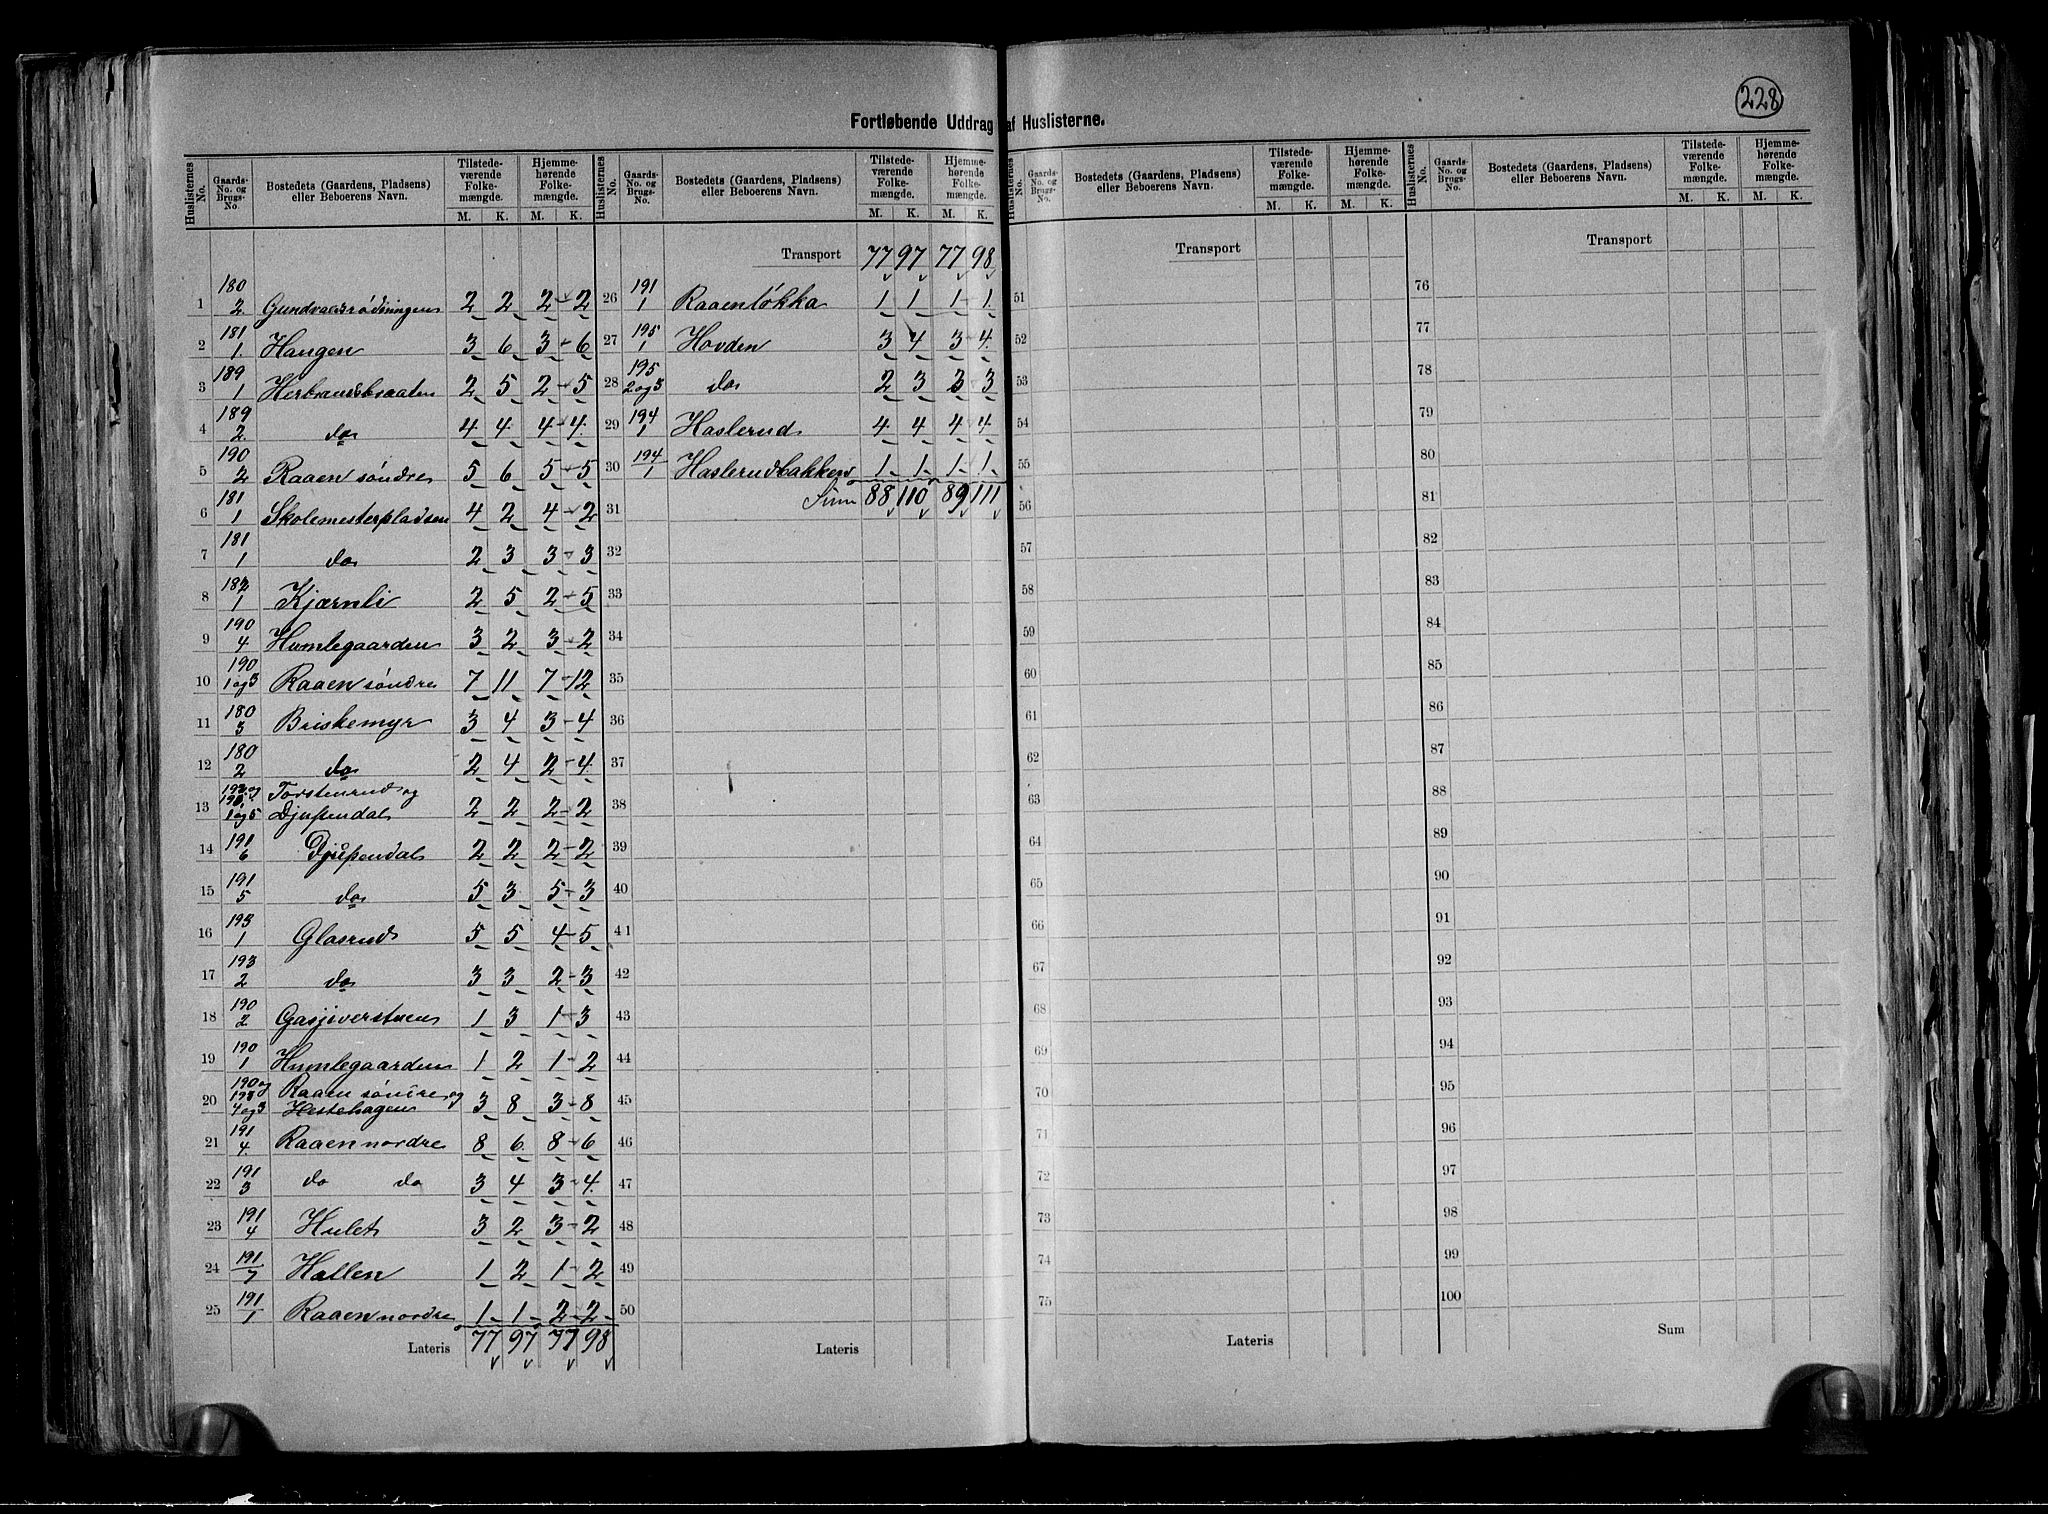 228
Fortløbende Uddrag af Huslisterne.
Huslisternes No. | Gaards-No. og Brugs-No. | Bostedets (Gaardens, Pladsens) eller Beboerens Navn. | Tilstede-værende Folke-mængde. M. K. | Hjemme-hørende Folke-mængde. M. K.
1 180/2 Gundvaldsrødningen 2 2 2 - 2
2 181/1. Haugen 3 6 3 - 6
3 189/1 Herbrandsbraaten 2 5 2 - 5
4 189/2 do 4 4 4 - 4
5 190/2 Raaen søndre 5 6 5 - 5
6 181/1 Skolemesterpladsen 4 2 4 - 2
7 181/1 do 2 3 3 - 3
8 182/1 Kjærnli 2 5 2 - 5
9 190/4 Humlegaarden 3 2 3 - 2
10 190/1 og 3 Raaen søndre 7 11 7 - 12
11 180/3 Briskemyr 3 4 3 - 4
12 180/2 do 2 4 2 - 4
13 1 og 5 Torstenrud og Djupendal 2 2 2 - 2
14 191/6 Djupendal 2 2 2 - 2
15 191/5 do 5 3 5 - 3
16 193/1 Glasrud 5 5 4 - 5
17 193/2 do 3 3 2 - 3
18 190/2 1 3 1 - 3
19 190/1 Humlegaarden 1 2 1 - 2
20 190 og 4 og 3 Raaen søndre og Hestehagen 3 8 3 - 8
21 191/4 Raaen nordre 8 6 8 - 6
22 191/3 do do 3 4 3 - 4
23 191/4 Hulet 3 2 3 - 2
24 191/7 Hallen 1 2 1 - 2
25 191/1 Raaen nordre 1 1 2 - 2
Lateris 77 97 77 98
Huslisternes No. | Gaards-No. og Brugs-No. | Bostedets (Gaardens, Pladsens) eller Beboerens Navn. | Tilstede-værende Folke-mængde. M. K. | Hjemme-hørende Folke-mængde. M. K.
Transport 77 97 77 98
26 191/1 Raaenløkka 1 1 1 - 1
27 195/1 Hovden 3 4 3 4
28 195/2 og 3 do 2 3 3 3
29 194/1 Haslerud 4 4 4 4
30 194/1 Haslerudbakken 1 1 1 1
Sum 88 110 89 111
31
32
33
34
35
36
37
38
39
40
41
42
43
44
45
46
47
48
49
50
Lateris
Huslisternes No. | Gaards-No. og Brugs-No. | Bostedets (Gaardens, Pladsens) eller Beboerens Navn. | Tilstede-værende Folke-mængde. M. K. | Hjemme-hørende Folke-mængde. M. K.
Transport
51
52
53
54
55
56
57
58
59
60
61
62
63
64
65
66
67
68
69
70
71
72
73
74
75
Lateris
Huslisternes No. | Gaards-No. og Brugs-No. | Bostedets (Gaardens, Pladsens) eller Beboerens Navn. | Tilstede-værende Folke-mængde. M. K. | Hjemme-hørende Folke-mængde. M. K.
Transport
76
77
78
79
80
81
82
83
84
85
86
87
88
89
90
91
92
93
94
95
96
97
98
99
100
Sum